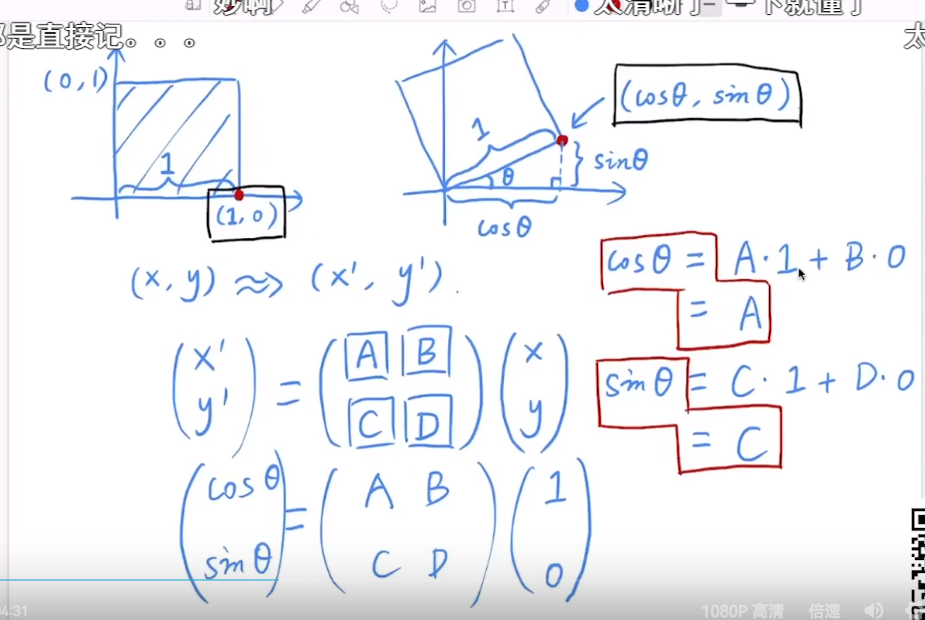 妙啊
太清晰了
一下就懂了
都是直接记。。。
太
(0,1)
1
(1,0)
1
θ
sinθ
cosθ
(cosθ, sinθ)
(x, y) ≈> (x', y').
(x' y') = (A B C D) (x y)
(cosθ sinθ) = (A B C D) (1 0)
cosθ = A·1 + B·0
= A
sinθ = C·1 + D·0
= C
4:31
1080P 高清
倍速